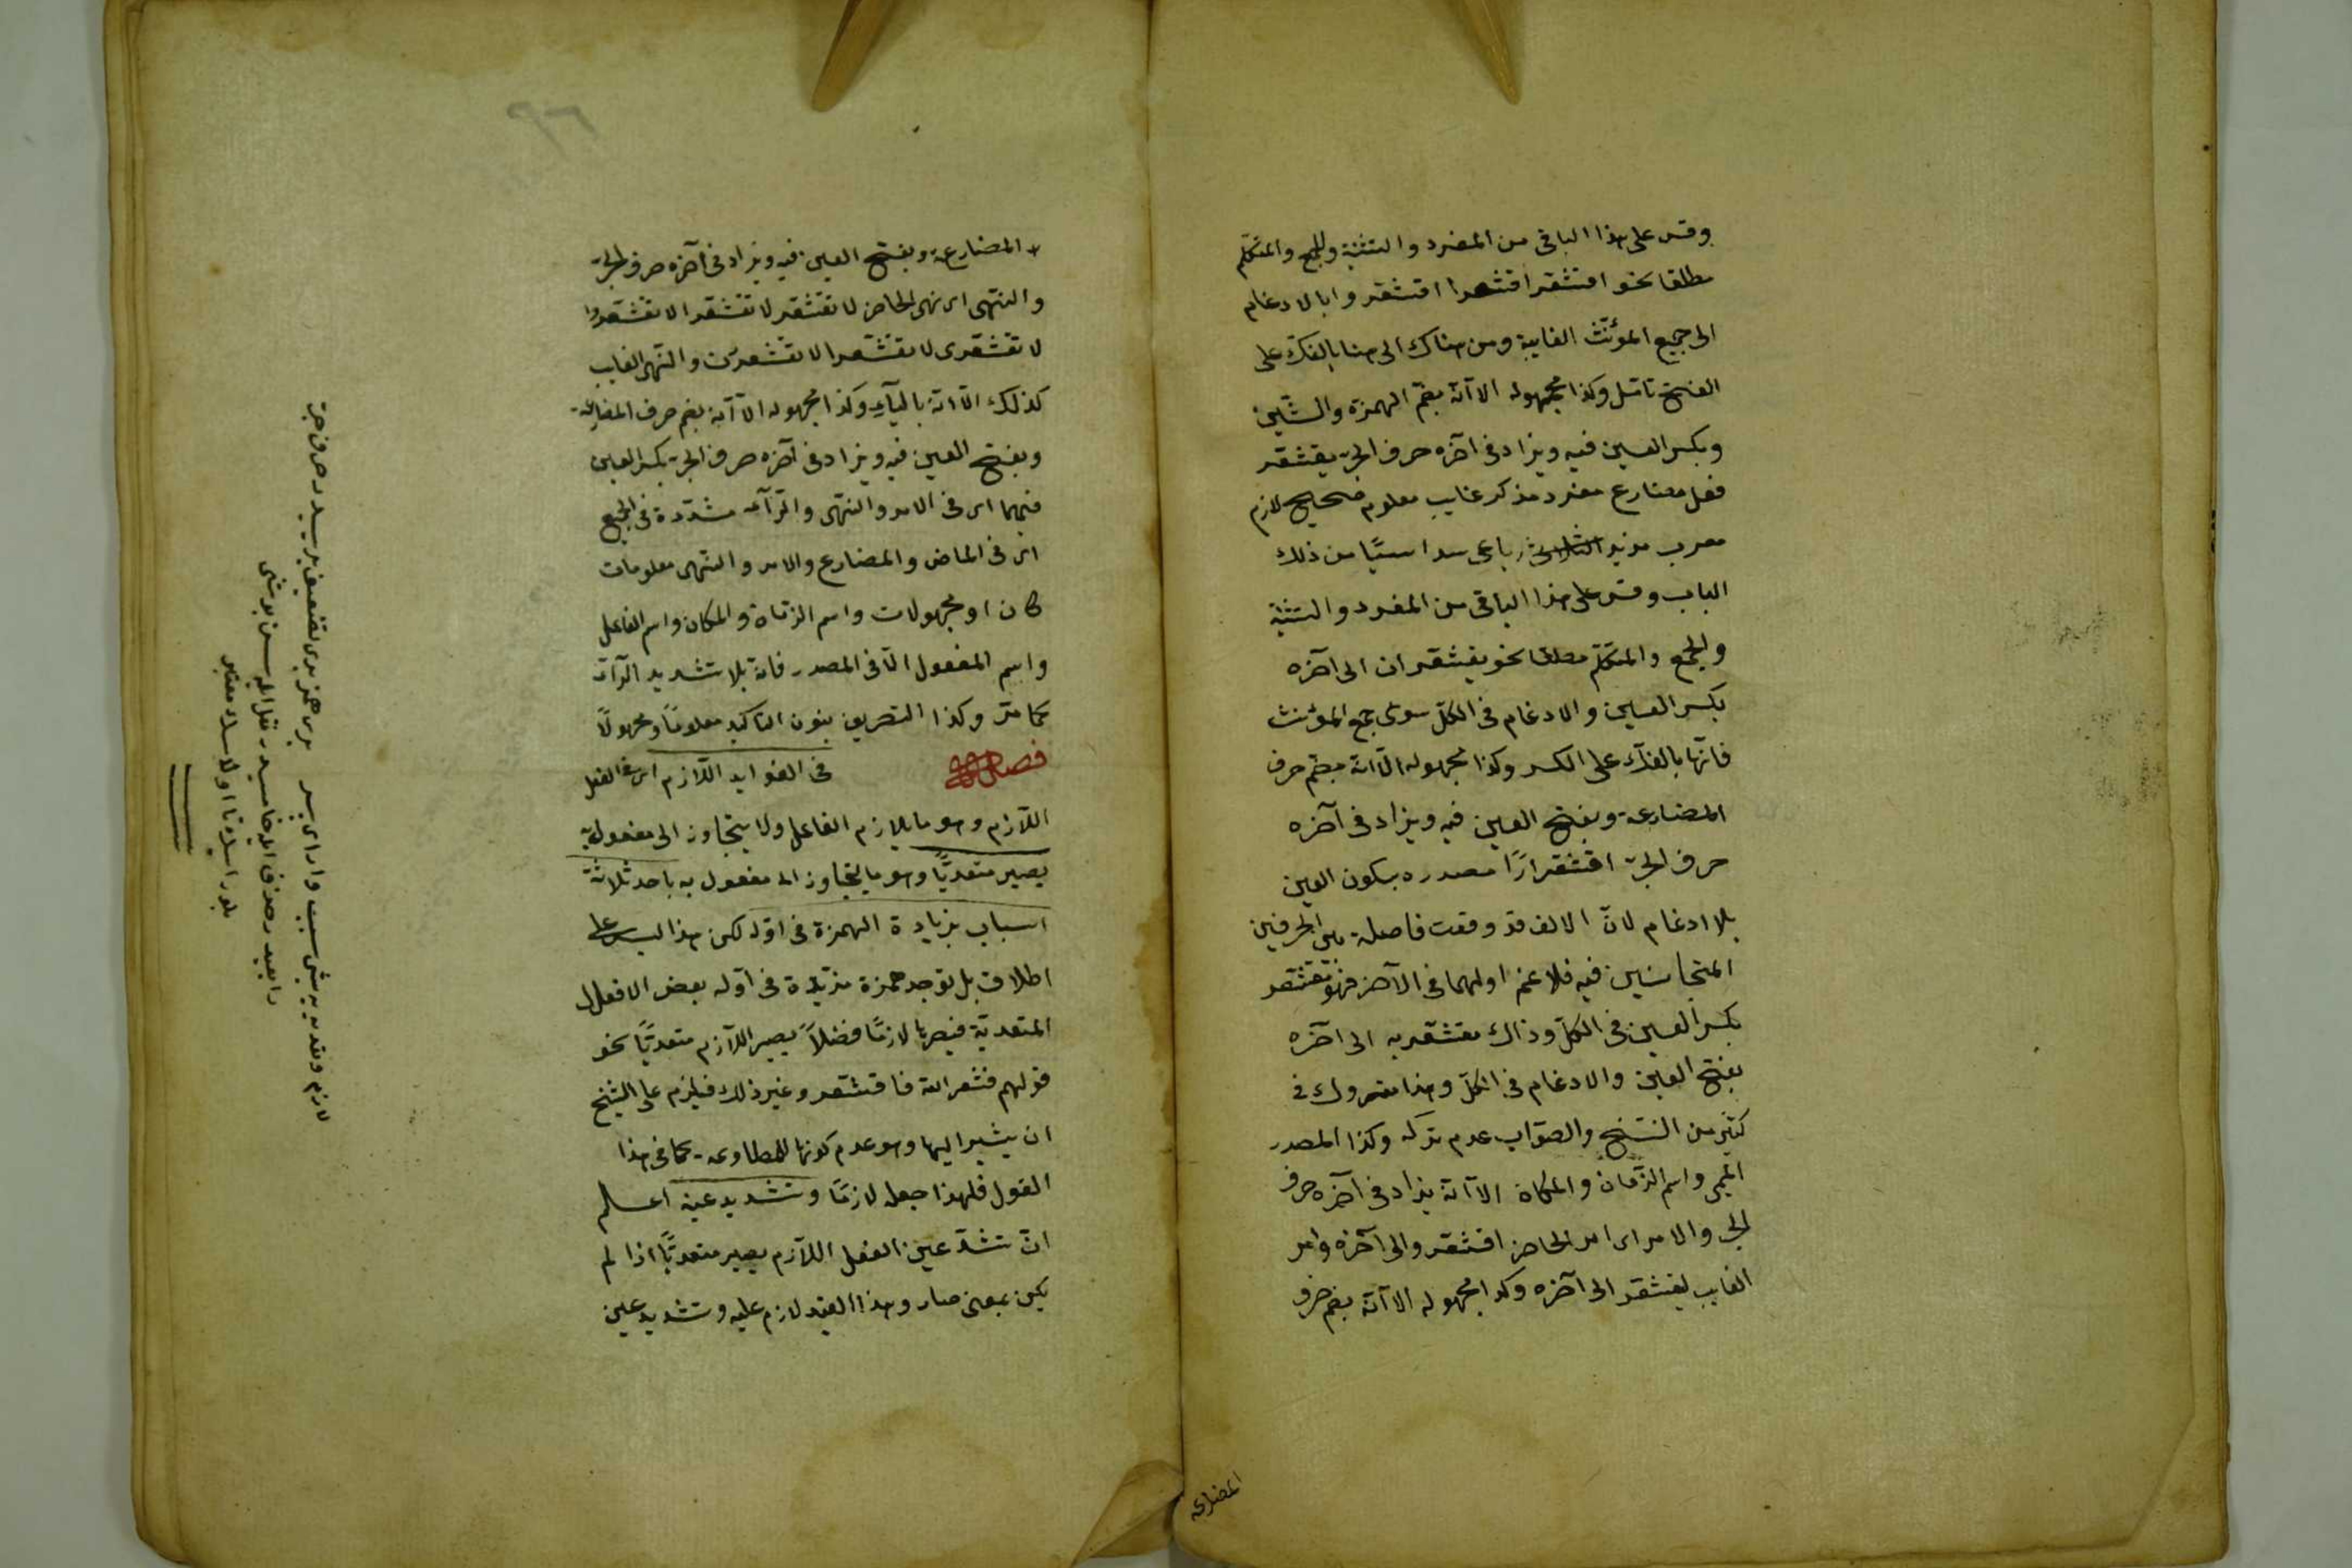 وقس على هذا الباقى من المفرد والتثنية والجمع والمتكلم
مطلقا نحو اقشعر اقشعرا اقشعروا بالادغام
الى جميع المؤنث الغايبة ومن هناك الى هنا بالفك على
الفتح تامل وكذا مجهوله الا انه بضم الهمزة والشين
وبكسر العين فيه ويزاد فى آخره حرف الجر يقشعر
فعل مضارع مفرد مذكر غايب معلوم صحيح لازم
معرب مزيد رباعى سداسيا من ذلك
الباب وقس على هذا الباقى من المفرد والتثنية
والجمع والمتكلم مطلقا نحو يقشعران الى آخره
بكسر العين والادغام فى الكل سوى جمع المؤنث
فانها بالفك على الكسر وكذا مجهوله الا انه بضم حرف
المضارعة وبفتح العين فيه ويزاد فى آخره
حرف الجر اقشعرارا مصدره بسكون العين
بلا ادغام لان الالف قد وقعت فاصلة بين الحرفين
المتجانسين فيه فلا غم اولهما فى الآخر فهو مقشعر
بكسر العين فى الكل وذاك مقشعر به الى آخره
بفتح العين والادغام فى الكل وهذا متروك فى
كثير من النسخ والصواب عدم تركه وكذا المصدر
الميمى واسم الزمان والمكان الا انه يزاد فى آخره حرف
الجر والامر اى امر الحاضر اقشعر والى آخره وامر
الغايب ليقشعر الى آخره وكذا مجهوله الا انه بضم حرف
المضارعة
٩٦
المضارعة وبفتح العين فيه ويزاد فى آخره حرف الجر
والنهى اى نهى الحاضر لا تقشعر لا تقشعرا لا تقشعروا
لا تقشعرى لا تقشعرا لا تقشعررن والنهى الغايب
كذلك الا انه بالياء وكذا مجهوله الا انه بضم حرف المضارعة
وبفتح العين فيه ويزاد فى آخره حرف الجر بكسر العين
فيهما اى فى الامر والنهى والراء مشددة فى الجميع
اى فى الماض والمضارع والامر والنهى معلومات
كان او مجهولات واسم الزمان والمكان واسم الفاعل
واسم المفعول الا فى المصدر فانه بلا تشديد الراء
كما مر وكذا التصريف بنون التاكيد معلوما ومجهولا
فصل فى الفوايد اللازم اى الفعل
اللازم وهو ما يلازم الفاعل ولا يتجاوز الى مفعول به
يصير متعديا وهو ما يتجاوز الى مفعول به باحد ثلاثة
اسباب بزيادة الهمزة فى اوله لكن هذا ليس على
اطلاق بل توجد همزة مزيدة فى اوله بعض الافعال
المتعدية فيصيرها لازما فضلا يصير اللازم متعديا نحو
قولهم قشعر الله فاقشعر وغير ذلك فيلزم على الشيخ
ان يشير اليها وهو عدم كونها للمطاوعة كما فى هذا
القول فلهذا جعله لازما وتشديد عينه اعلم
ان تشد عين الفعل اللازم يصير متعديا اذا لم
يكن بمعنى صار وهذا القيد لازم عليه وتشديد عين